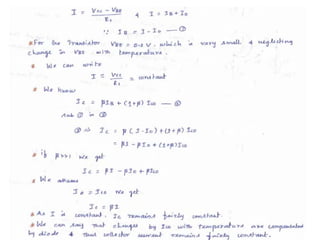 I = (Vcc - VBE)/R1 & I = IB + Io
∵ IB = I - Io — ①
* For Ge Transistor VBE = 0.2 V, which is very small & neglecting
change in VBE with temperature.
* We can write
I ≅ Vcc/R1 = constant
* We know
Ic = βIB + (1+β) Ico — ②
sub ① in ②
② ⇒ Ic = β(I - Io) + (1+β) Ico
= βI - βIo + (1+β)Ico
* if β>>1 We get
Ic = βI - βIo + βIco
* We assume
Io = Ico We get
Ic = βI
* As I is constant, Ic remains fairly constant.
* We can say that changes by Ico with temperature are compensated
by diode & that collector current remains fairly constant.